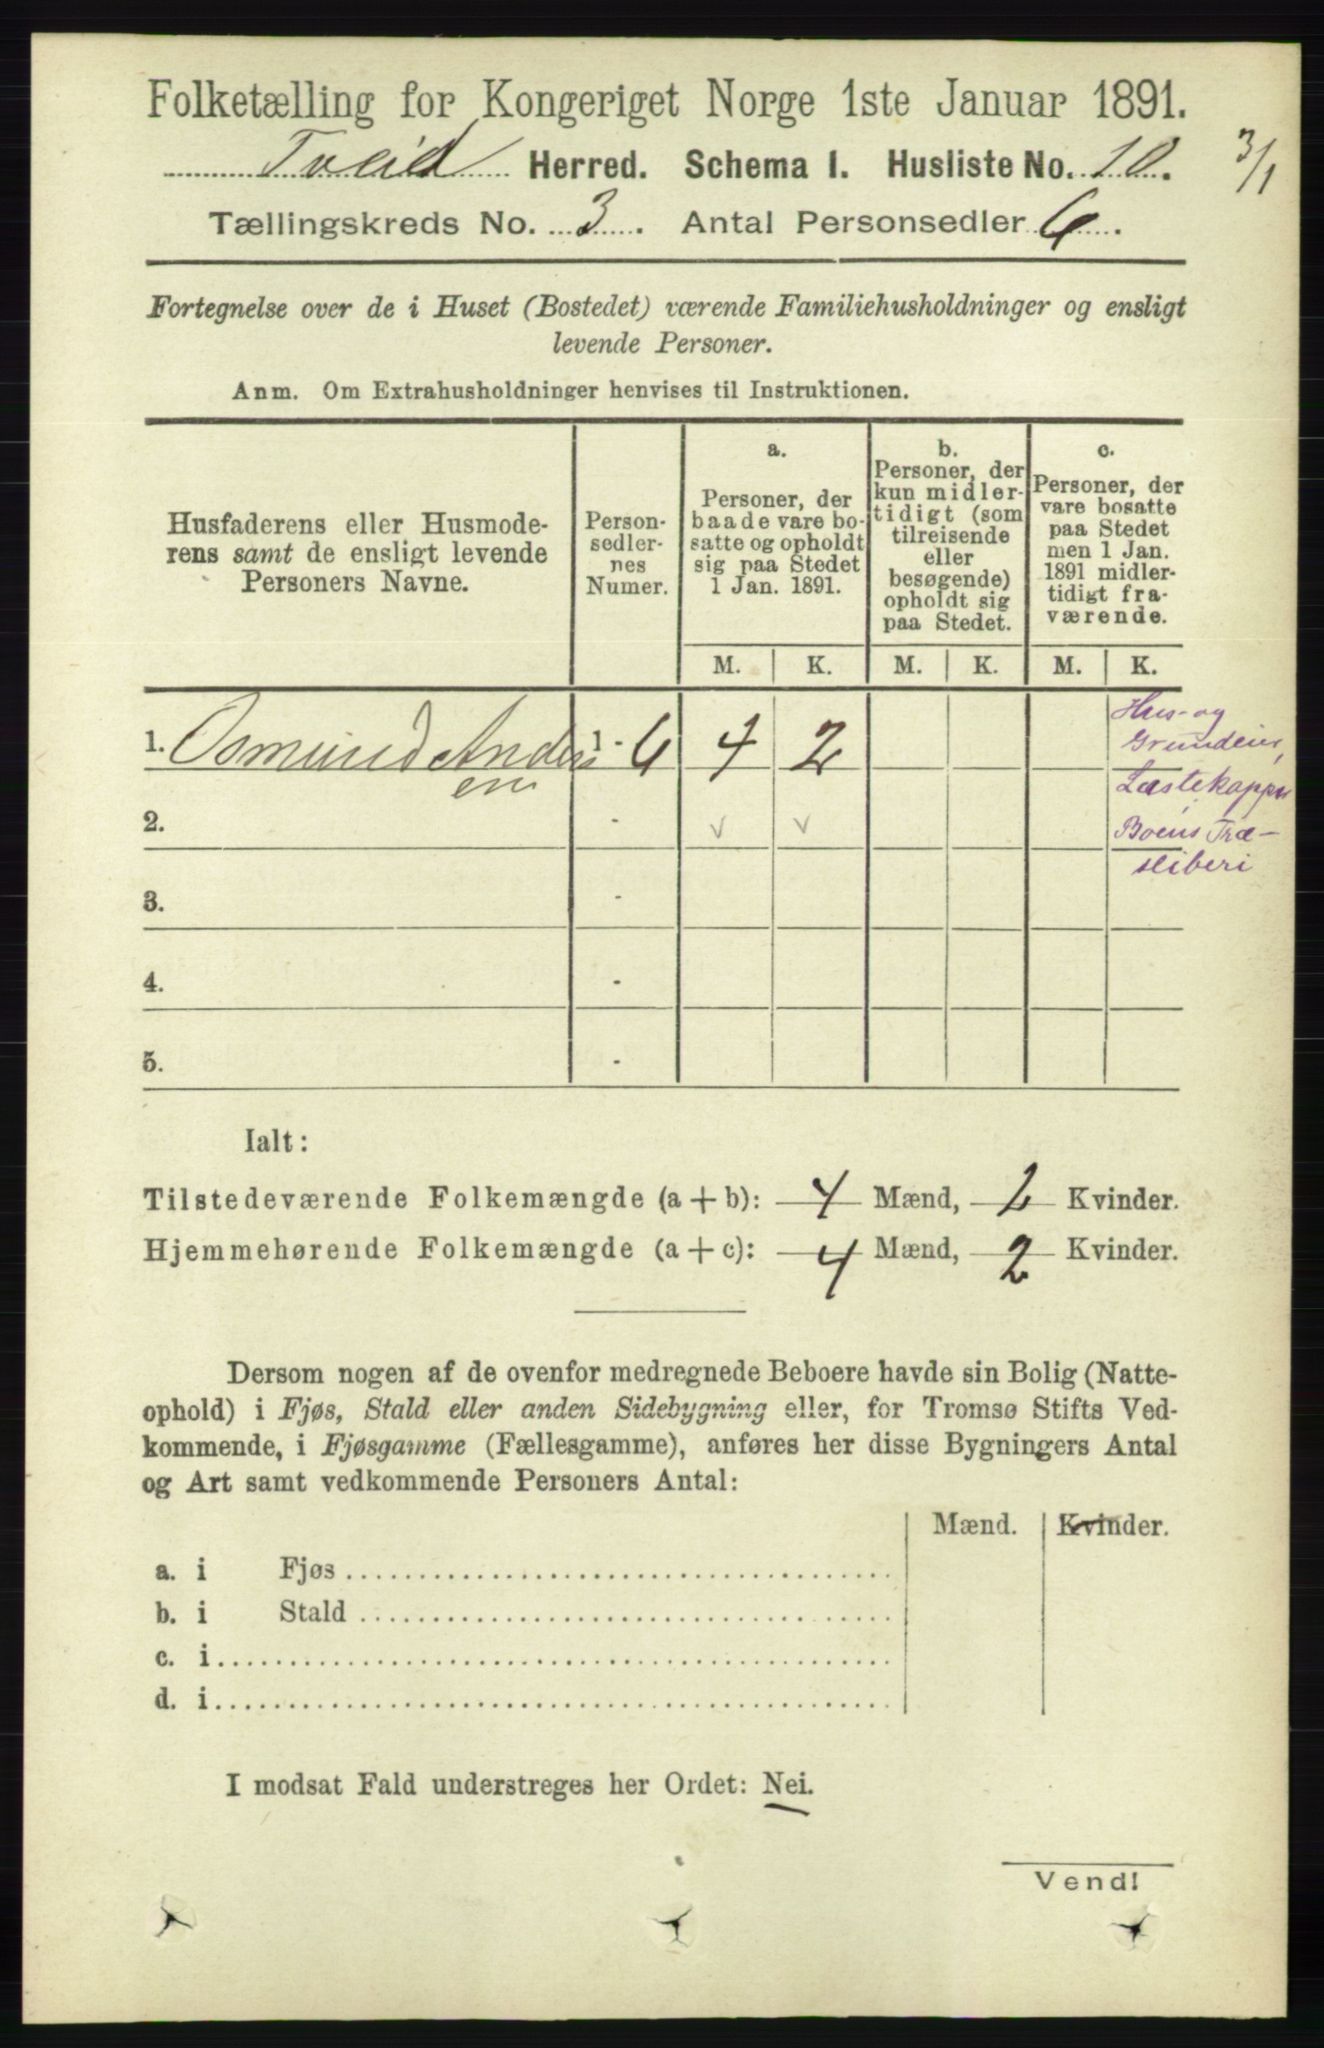 Folketælling for Kongeriget Norge 1ste Januar 1891.
Tveid Herred. Schema 1. Husliste No. 10.
3/1
Tællingskreds No. 3. Antal Personsedler 6.
Fortegnelse over de i Huset (Bostedet) værende Familiehusholdninger og ensligt
levende Personer.
Anm. Om Extrahusholdninger henvises til Instruktionen.
Husfaderens eller Husmode-
rens samt de ensligt levende
Personers Navne.
Person-
sedler-
nes
Numer.
a.
Personer, der
baade vare bo-
satte og opholdt
sig paa Stedet
1 Jan. 1891.
b.
Personer, der
kun midler-
tidigt (som
tilreisende
eller
besøgende)
opholdt sig
paa Stedet.
c.
Personer, der
vare bosatte
paa Stedet
men 1 Jan.
1891 midler-
tidigt fra-
værende.
M. K. M. K. M. K.
1. Osmund Anders 1 - 6 4 2
en
Hus- og
Grundeier,
Læstekappen
Boens Træ-
sliberi
2. -
3. -
4. -
5. -
Ialt:
Tilstedeværende Folkemængde (a + b): 4 Mænd, 2 Kvinder.
Hjemmehørende Folkemængde (a + c): 4 Mænd, 2 Kvinder.
Dersom nogen af de ovenfor medregnede Beboere havde sin Bolig (Natte-
ophold) i Fjøs, Stald eller anden Sidebygning eller, for Tromsø Stifts Ved-
kommende, i Fjøsgamme (Fællesgamme), anføres her disse Bygningers Antal
og Art samt vedkommende Personers Antal:
Mænd. Kvinder.
a. i Fjøs
b. i Stald
c. i
d. i
I modsat Fald understreges her Ordet: Nei.
Vend!